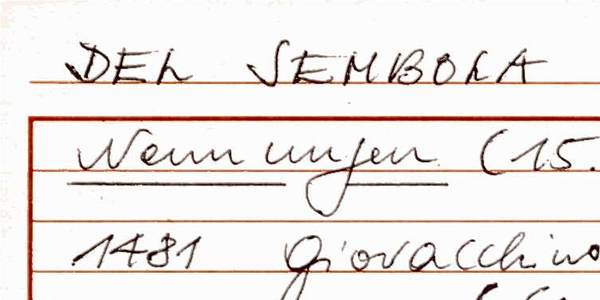 DEL SEMBOLA
Nennungen (15.
1481 Giovacchino